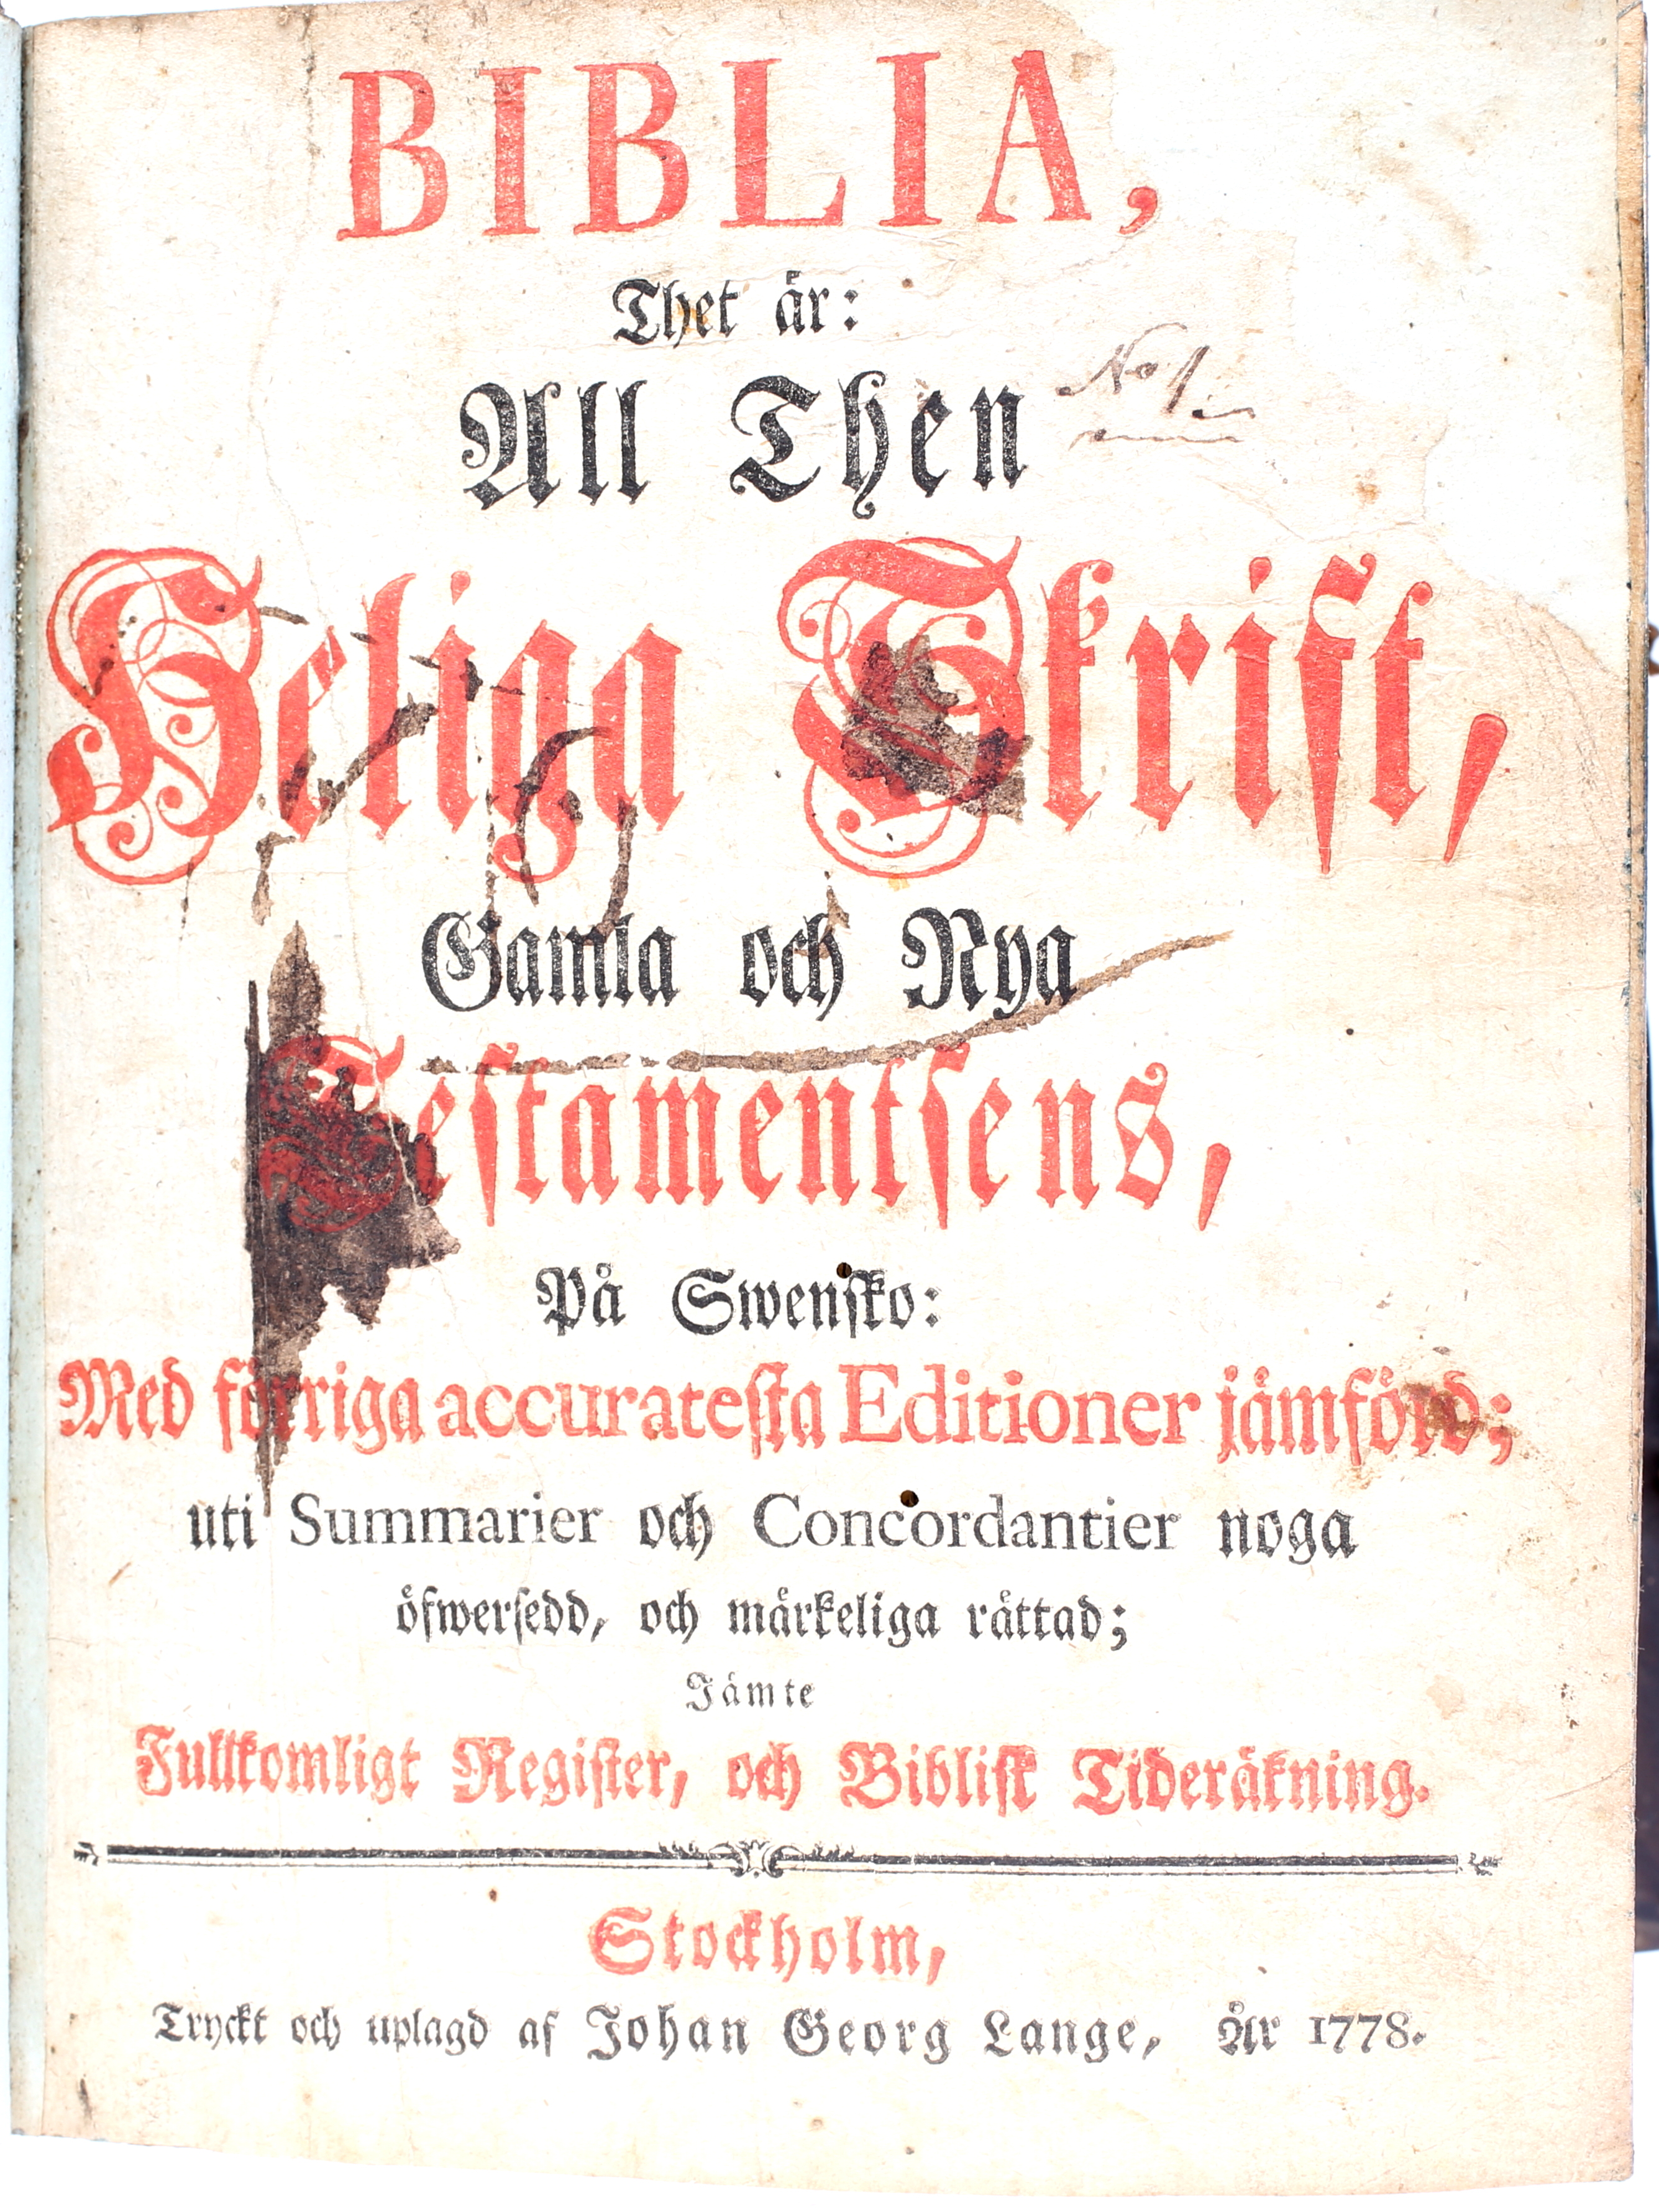 BIBLIA,
Thet är:
All Then
No 1.
Heliga Skrift,
Gamla och Nya
Testamentsens,
På Swensko:
Med förriga accuratesta Editioner jämförd;
uti Summarier och Concordantier noga
öfwersedd, och märkeliga rättad;
Jämte
Fullkomligt Register, och Biblisk Tideräkning.
Stockholm,
Tryckt och uplagd af Johan Georg Lange, År 1778.